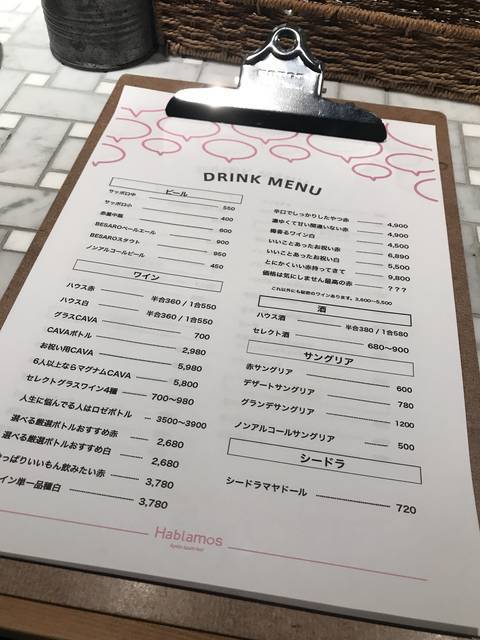 DRINK MENU
ビール
サッポロ中 550
サッポロ小 400
赤星中瓶 600
BESAROペールエール 900
BESAROスタウト 950
ノンアルコールビール 450
ワイン
ハウス赤 半合360 / 1合550
ハウス白 半合360 / 1合550
グラスCAVA 700
CAVAボトル 2,980
お祝い用CAVA 5,980
6人以上ならマグナムCAVA 5,800
セレクトグラスワイン4種 700〜980
人生に悩んでる人はロゼボトル 3500〜3900
選べる厳選ボトルおすすめ赤 2,680
選べる厳選ボトルおすすめ白 2,680
っぱりいいもん飲みたい赤 3,780
イン単一品種白 3,780
辛口でしっかりしたやつ赤 4,900
濃ゆくて甘い間違いない赤 4,900
樽香るワイン白 4,500
いいことあったお祝い赤 6,890
いいことあったお祝い白 5,500
とにかくいい赤持ってきて 9,800
価格は気にしません最高の赤 ???
これ以外にも秘密のワインあります。3,600〜5,500
酒
ハウス酒 半合380 / 1合580
セレクト酒 680〜900
サングリア
赤サングリア 600
デザートサングリア 780
グランデサングリア 1200
ノンアルコールサングリア 500
シードラ
シードラマヤドール 720
Hablamos